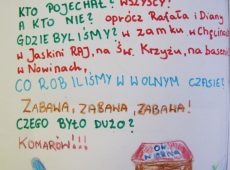 KTO POJECHAŁ? WSZYSCY!
A KTO NIE? oprócz Rafała i Diany
GDZIE BYLIŚMY? w zamku w Chęcinach
w Jaskini RAJ, na Św. Krzyżu, na basenie
w Nowinach,
CO ROBILIŚMY W WOLNYM CZASIE?
ZABAWA, ZABAWA, ZABAWA!
CZEGO BYŁO DUŻO?
KOMARÓW!!!